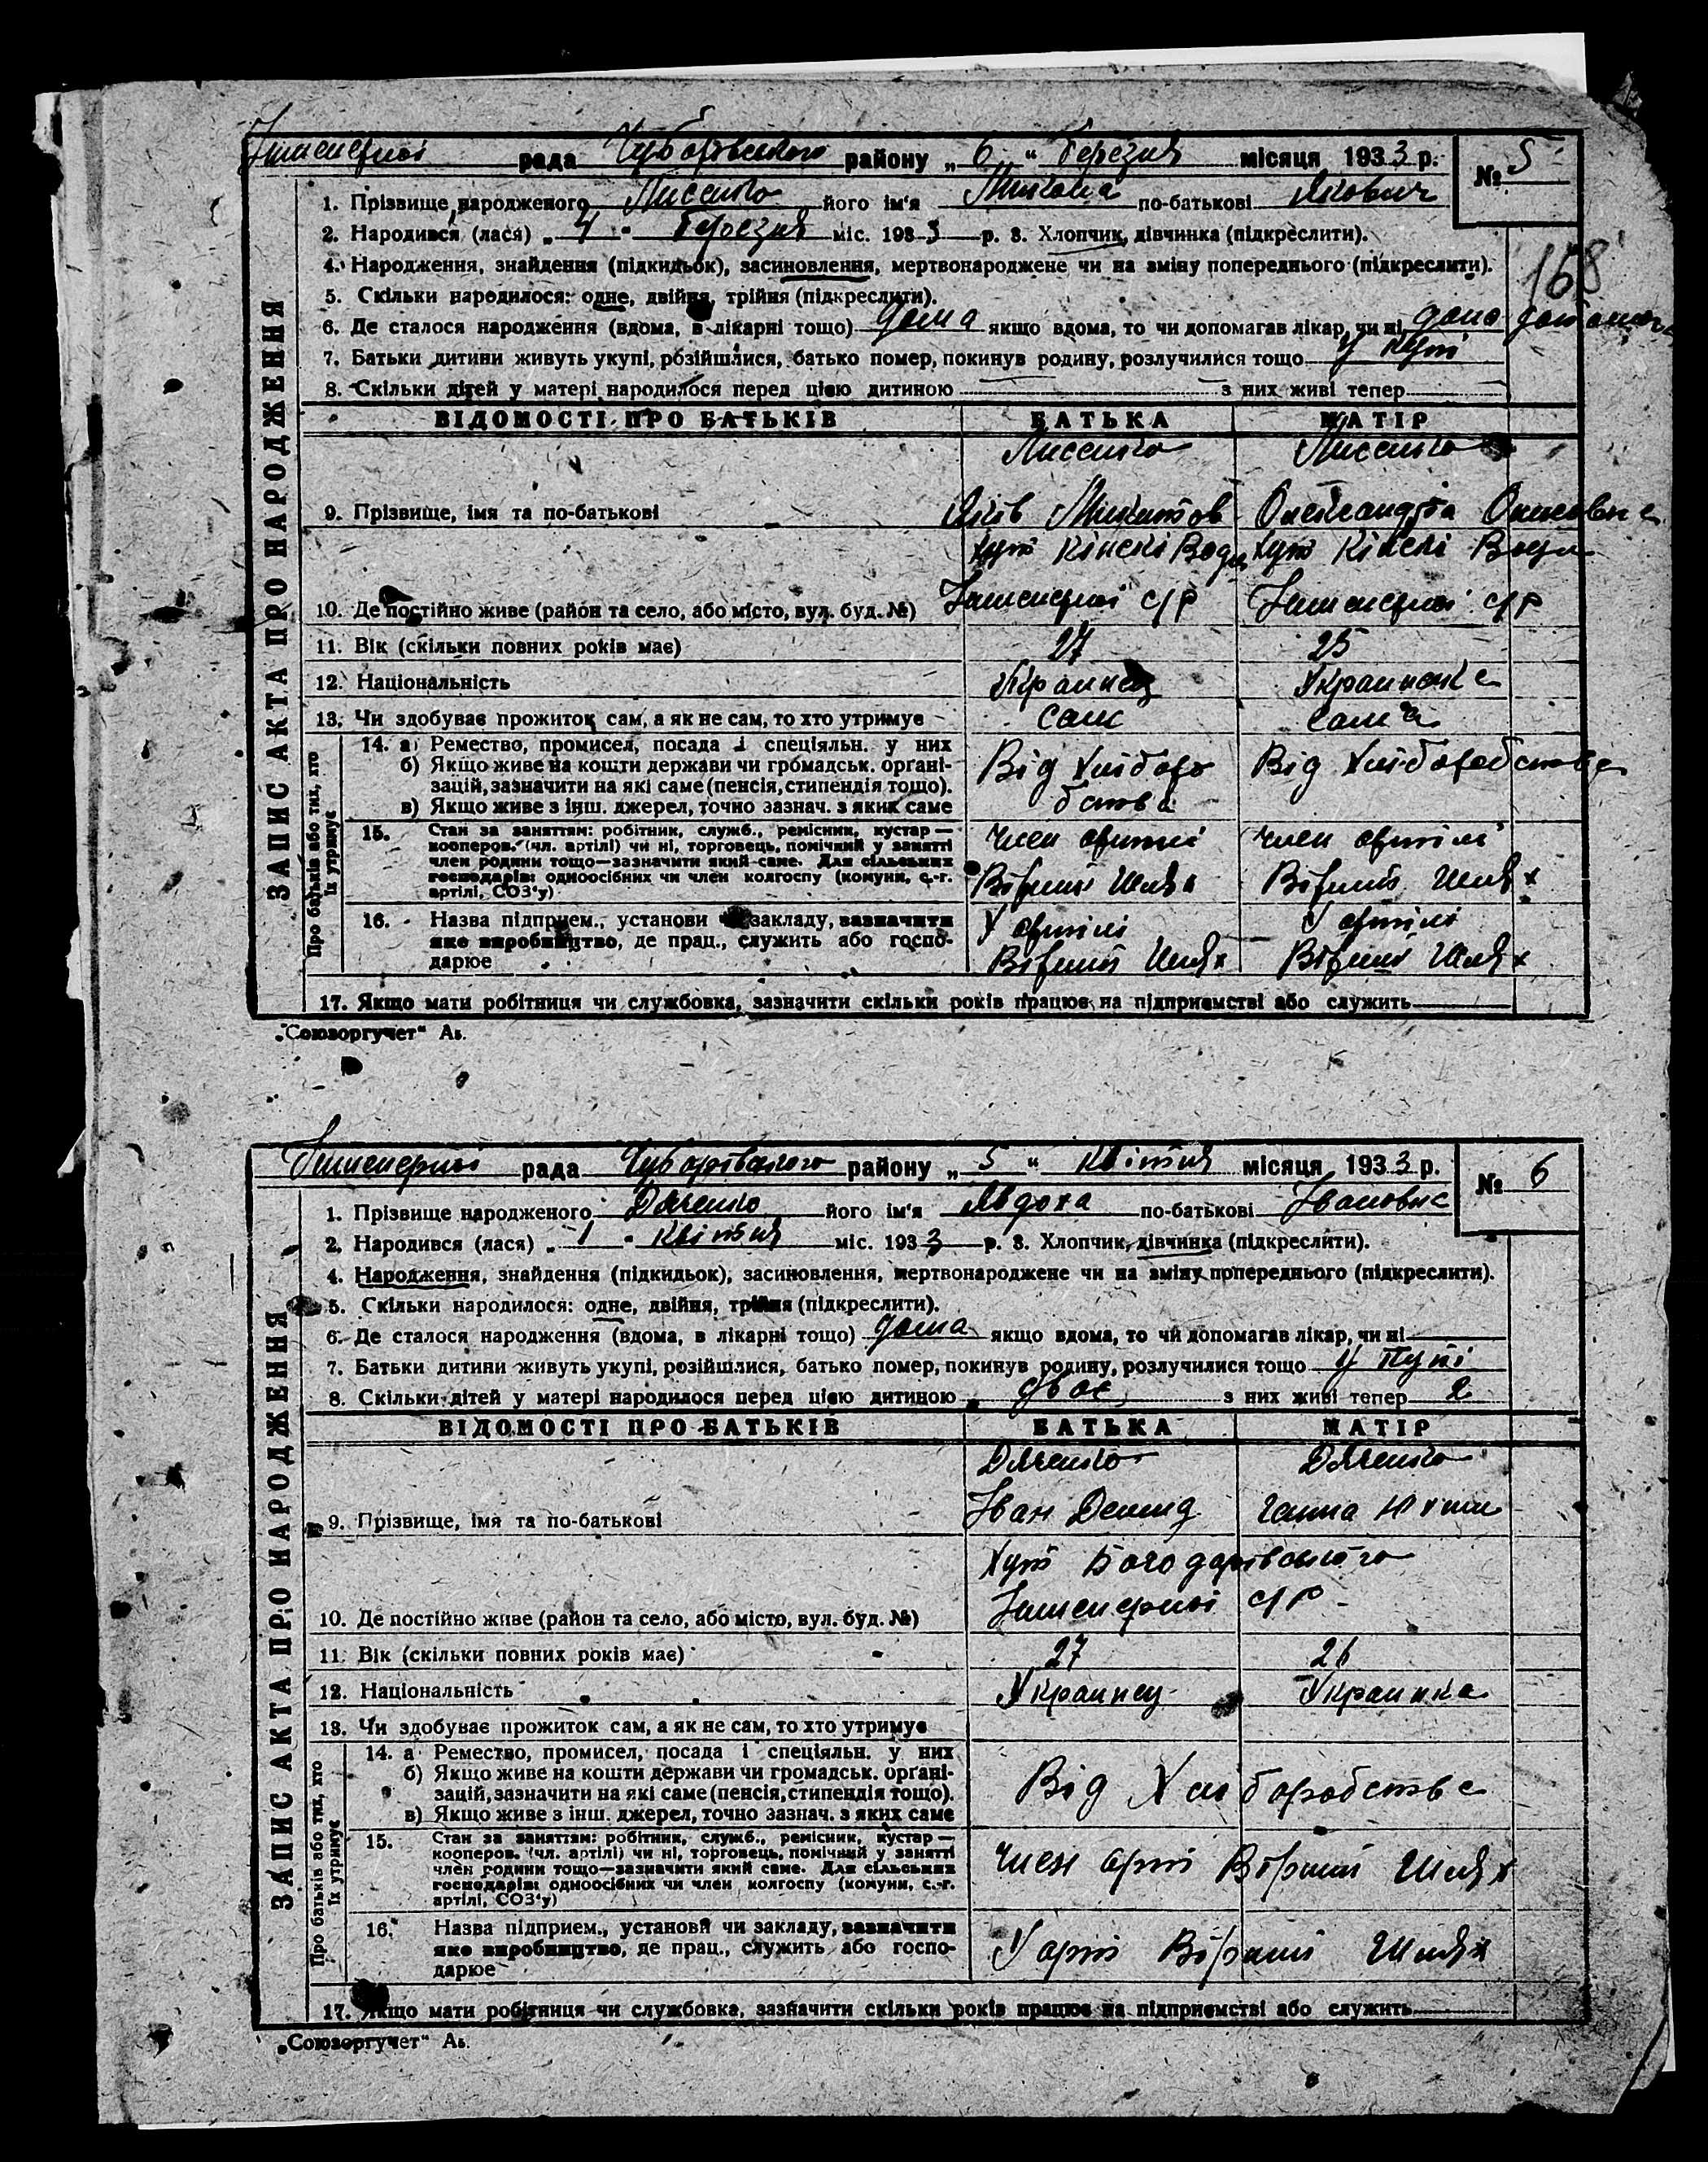 Інженерної рада Чубарівського району „ 6 “ Березня місяця 1933 р. № 5
1. Прізвище народженого Лисенко його ім'я Микола по-батькові Якович
2. Народився (лася) „ 4 “ Березня міс. 1933 р. 3. Хлопчик, дівчинка (підкреслити).
158
4. Народження, знайдення (підкидьок), засиновлення, мертвонароджене чи на зміну попереднього (підкреслити).
5. Скільки народилося: одне, двійня, трійня (підкреслити).
6. Де сталося народження (вдома, в лікарні тощо) дома якщо вдома, то чи допомагав лікар, чи ні
7. Батьки дитини живуть укупі, розійшлися, батько помер, покинув родину, розлучилися тощо у купі
8. Скільки дітей у матері народилося перед цією дитиною з них живі тепер
ЗАПИС АКТА ПРО НАРОДЖЕННЯ
ВІДОМОСТІ ПРО БАТЬКІВ БАТЬКА МАТІР
Лисенко Лисенко
9. Прізвище, імя та по-батькові Яків Микитов Олександра
хут Кінскі Води хут Кінскі Води
10. Де постійно живе (район та село, або місто, вул. буд. №) Інженерної с/р Інженерної с/р
11. Вік (скільки повних років має) 27 25
12. Національність Украинец Украинка
13. Чи здобуває прожиток сам, а як не сам, то хто утримує сам сама
Про батьків або тих, хто їх утримує
14. а) Ремество, промисел, посада і спеціяльн. у них
б) Якщо живе на кошти держави чи громадськ. органі-
зацій, зазначити на які саме (пенсія, стипендія тощо).
в) Якщо живе з інш. джерел, точно зазнач. з яких саме
Від Хліборо
бства
Від Хліборобства
15. Стан за заняттям: робітник, служб., ремісник, кустар —
кооперов. (чл. артілі) чи ні, торговець, помічний у занятті
член родини тощо—зазначити який саме. Для сільських
господарів: одноосібних чи член колгоспу (комуни, с.-г.
артілі, СОЗ'у)
член артілі член артілі
Вірний Шлях Вірний Шлях
16. Назва підприєм., установи чи закладу, зазначити
яке виробництво, де прац., служить або госпо-
дарює
У артілі У артілі
Вірний Шлях Вірний Шлях
17. Якщо мати робітниця чи службовка, зазначити скільки років працює на підприємстві або служить
„Союзоргучет“ Ав.
Інженерної рада Чубарівського району „ 5 “ Квітня місяця 1933 р. № 6
1. Прізвище народженого Дяченко його ім'я Явдоха по-батькові Івановна
2. Народився (лася) „ 1 “ Квітня міс. 1933 р. 3. Хлопчик, дівчинка (підкреслити).
4. Народження, знайдення (підкидьок), засиновлення, мертвонароджене чи на зміну попереднього (підкреслити).
5. Скільки народилося: одне, двійня, трійня (підкреслити).
6. Де сталося народження (вдома, в лікарні тощо) дома якщо вдома, то чи допомагав лікар, чи ні
7. Батьки дитини живуть укупі, розійшлися, батько помер, покинув родину, розлучилися тощо у купі
8. Скільки дітей у матері народилося перед цією дитиною двоє з них живі тепер 2
ЗАПИС АКТА ПРО НАРОДЖЕННЯ
ВІДОМОСТІ ПРО БАТЬКІВ БАТЬКА МАТІР
Дяченко Дяченко
9. Прізвище, імя та по-батькові Іван Демид Ганна
хут Богодарівського
10. Де постійно живе (район та село, або місто, вул. буд. №) Інженерної с/р
11. Вік (скільки повних років має) 27 26
12. Національність Украинец Украинка
13. Чи здобуває прожиток сам, а як не сам, то хто утримує
Про батьків або тих, хто їх утримує
14. а Ремество, промисел, посада і спеціяльн. у них
б) Якщо живе на кошти держави чи громадськ. органі-
зацій, зазначити на які саме (пенсія, стипендія тощо).
в) Якщо живе з інш. джерел, точно зазнач. з яких саме
Від Хліборобства
15. Стан за заняттям: робітник, служб., ремісник, кустар —
кооперов. (чл. артілі) чи ні, торговець, помічний у занятті
член родини тощо—зазначити який саме. Для сільських
господарів: одноосібних чи член колгоспу (комуни, с.-г.
артілі, СОЗ'у)
член арті Вірний Шлях
16. Назва підприєм., установи чи закладу, зазначити
яке виробництво, де прац., служить або госпо-
дарює
У арті Вірний Шлях
17. Якщо мати робітниця чи службовка, зазначити скільки років працює на підприємстві або служить
„Союзоргучет“ Ав.